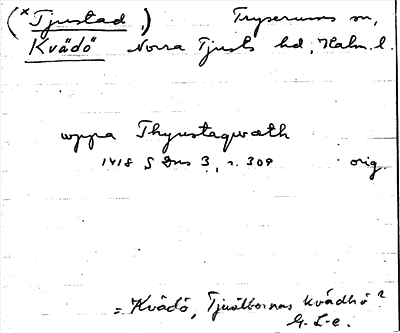 (× Tjustad) Tryserums sn,
Kvädö Norra Tjusts hd, Kalm. l.
uppa Thyustaqwæth
1418 S Dns 3, s. 309 orig.
= Kvädö, Tjustbornas kvädhö?
G. F-e.